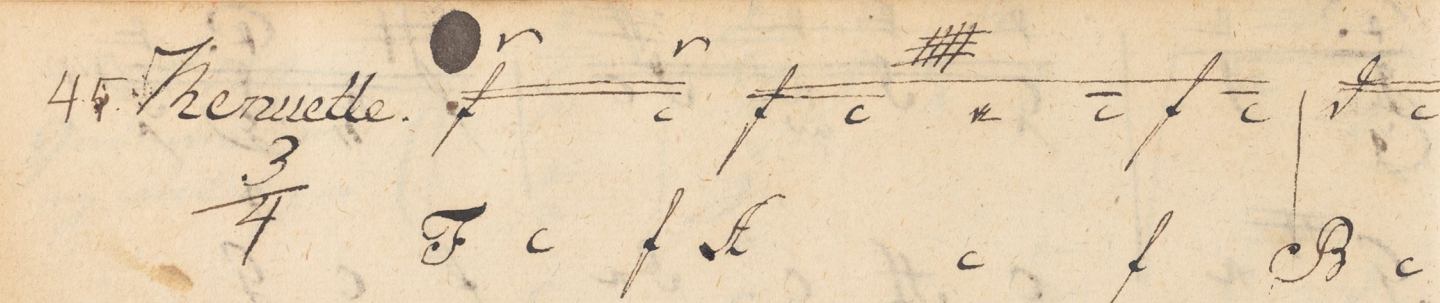 45. Menuette. f c f c a c f c d c
3/4
F c f A c f B c